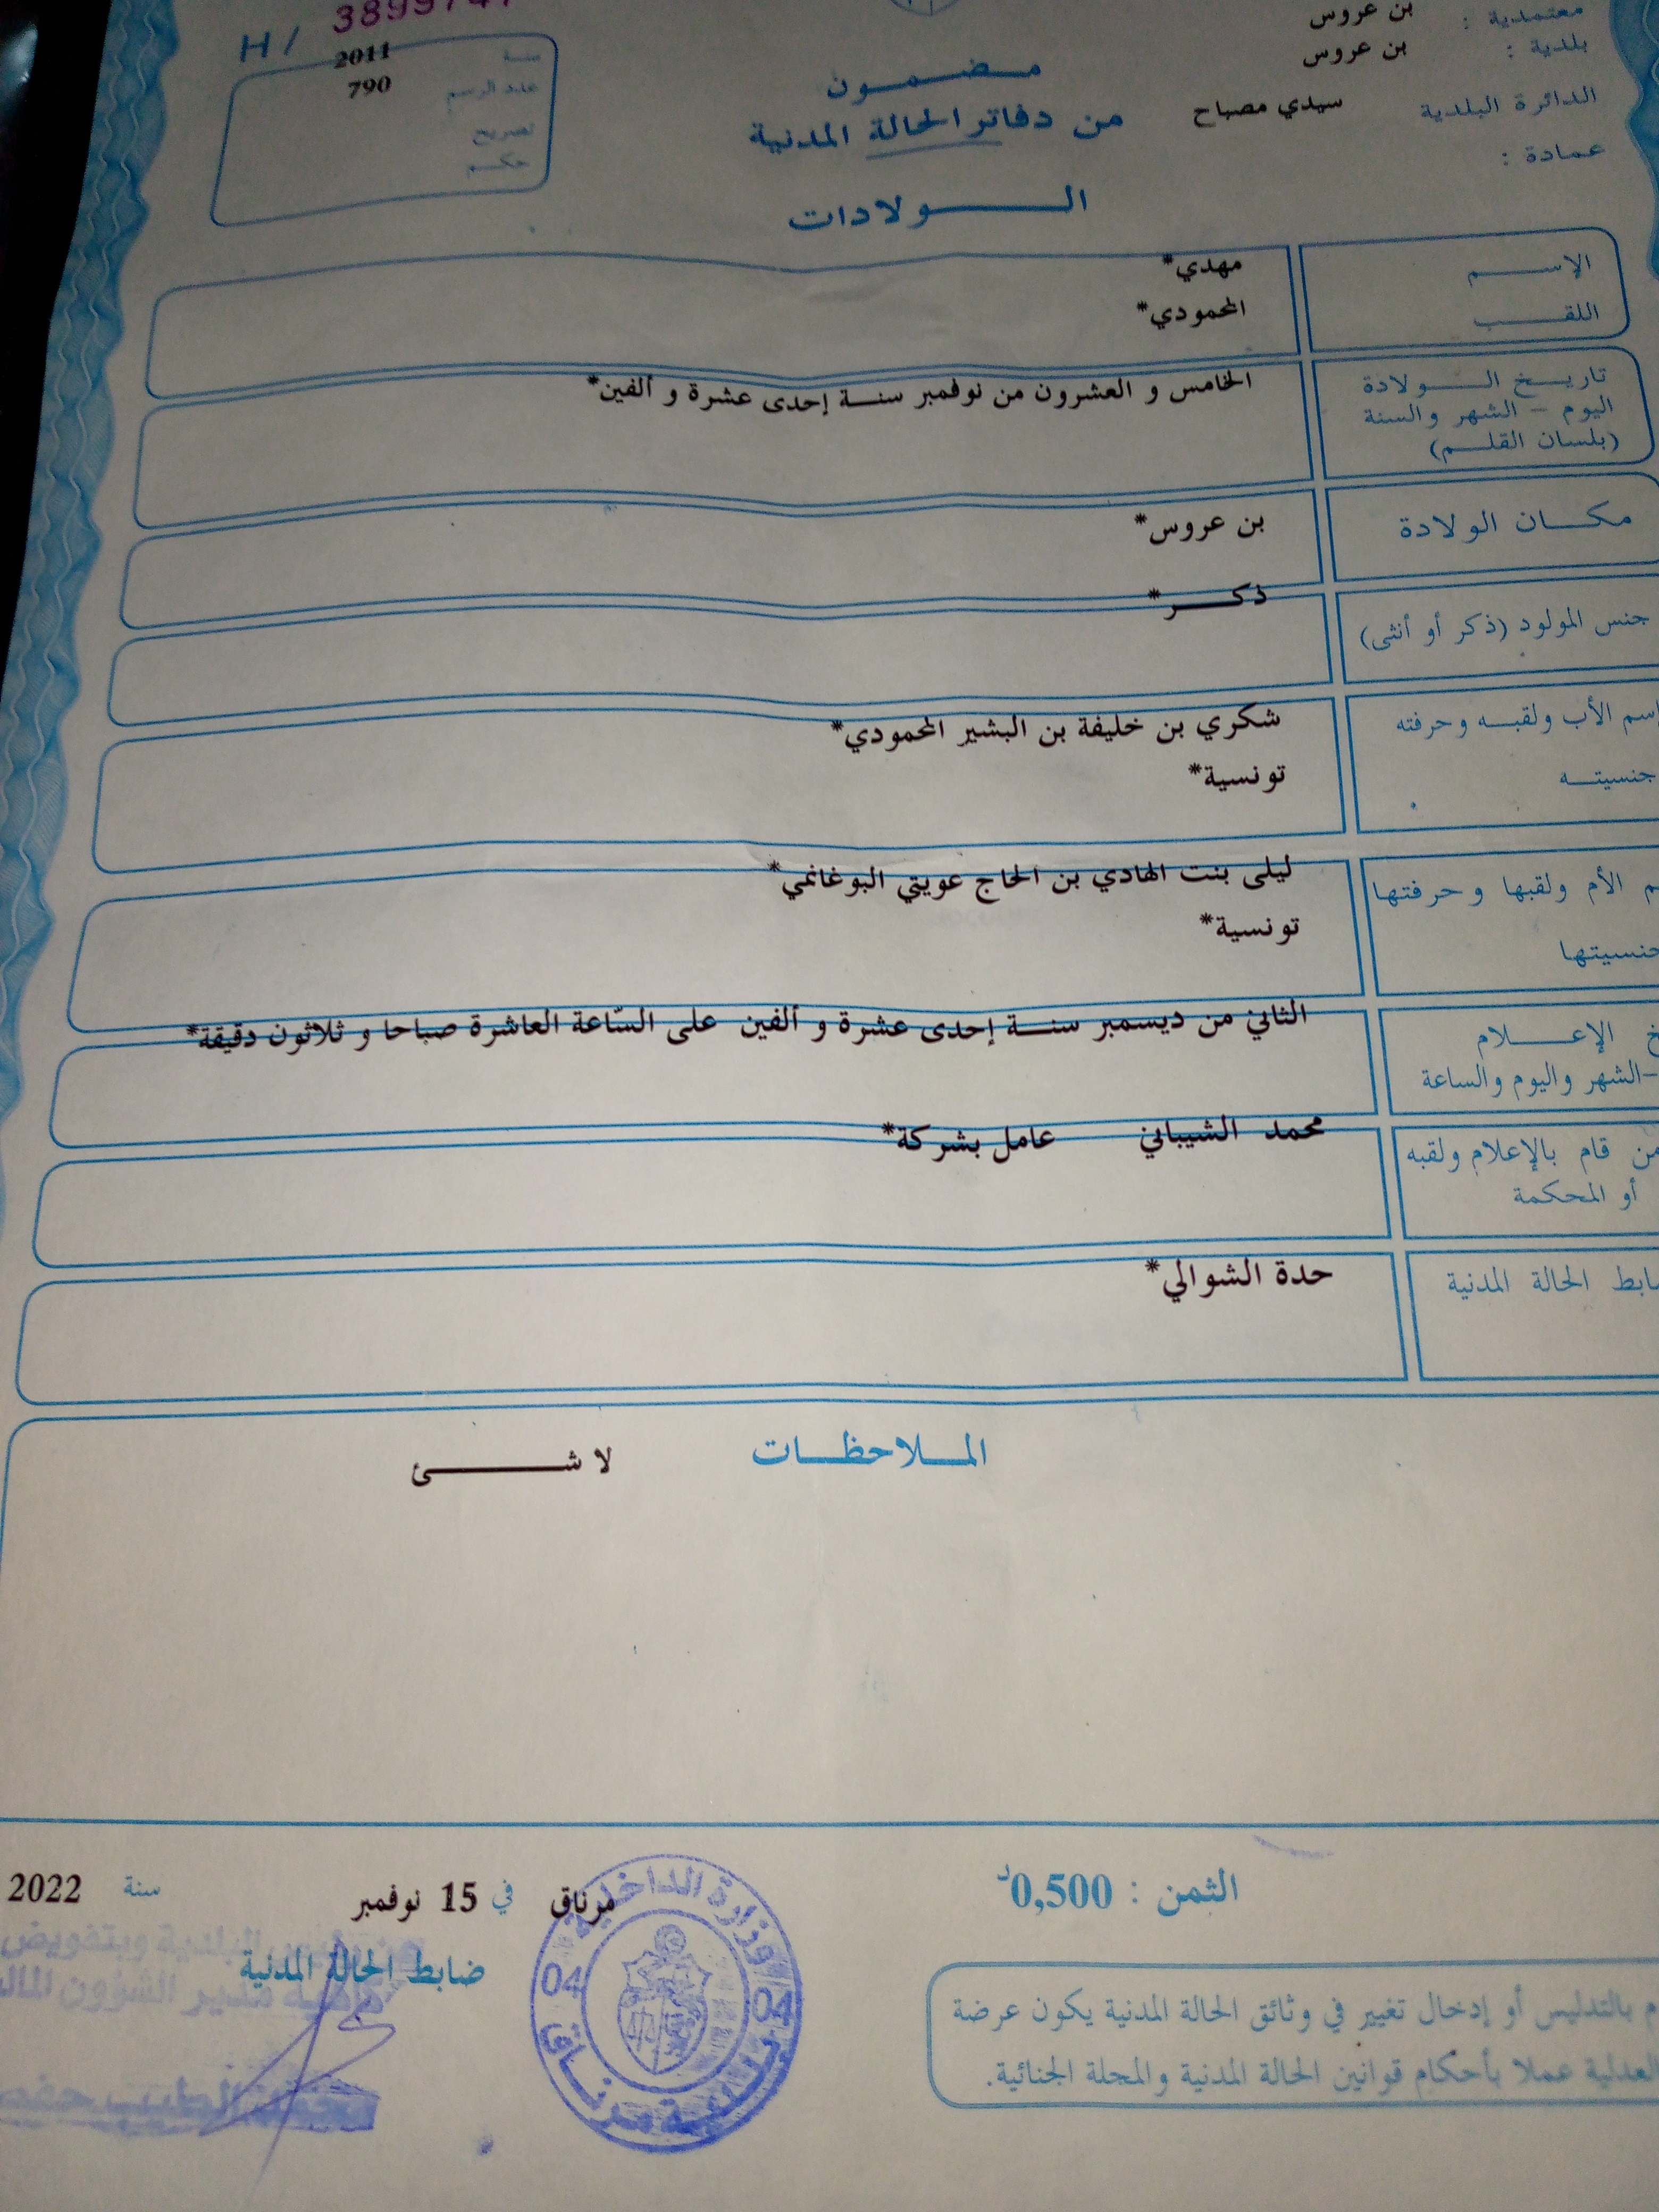 معتمدية : بن عروس
بلدية : بن عروس
الدائرة البلدية سيدي مصباح
عمادة :
مضمون
من دفاتر الحالة المدنية
الولادات
H /
سنة 2011
عدد الرسم 790
تصريح
حكم
الإسم مهدي*
اللقب المحمودي*
تاريخ الولادة الخامس و العشرون من نوفمبر سنة إحدى عشرة و ألفين*
اليوم - الشهر والسنة
(بلسان القلم)
مكان الولادة بن عروس*
جنس المولود (ذكر أو أنثى) ذكر*
إسم الأب ولقبه وحرفته شكري بن خليفة بن البشير المحمودي*
جنسيته تونسية*
الأم ولقبها وحرفتها ليلى بنت الهادي بن الحاج عويتي البوغانمي*
جنسيتها تونسية*
الإعلام الثاني من ديسمبر سنة إحدى عشرة و ألفين على السّاعة العاشرة صباحا و ثلاثون دقيقة*
-الشهر واليوم والساعة
من قام بالإعلام ولقبه محمد الشيباني عامل بشركة*
أو المحكمة
ضابط الحالة المدنية حدة الشوالي*
الملاحظات لا شئ
الثمن : 0,500د
مرناق في 15 نوفمبر سنة 2022
ضابط الحالة المدنية
وزارة الداخلية
04 04
بلدية مرناق
بالتدليس أو إدخال تغيير في وثائق الحالة المدنية يكون عرضة
العدلية عملا بأحكام قوانين الحالة المدنية والمجلة الجنائية.